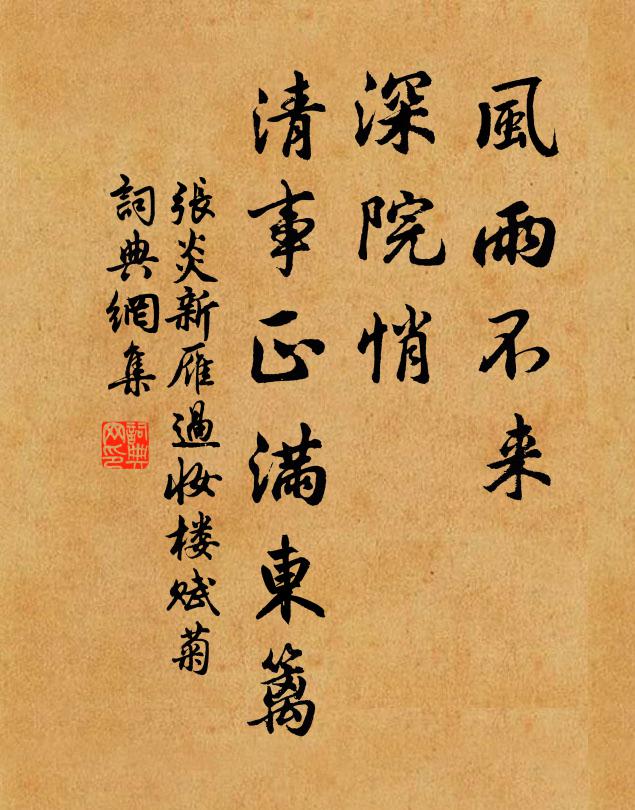 風雨不来
深院悄
清事正滿東籬
張炎新雁過妝楼賦菊
詞典網集
詞典
网印